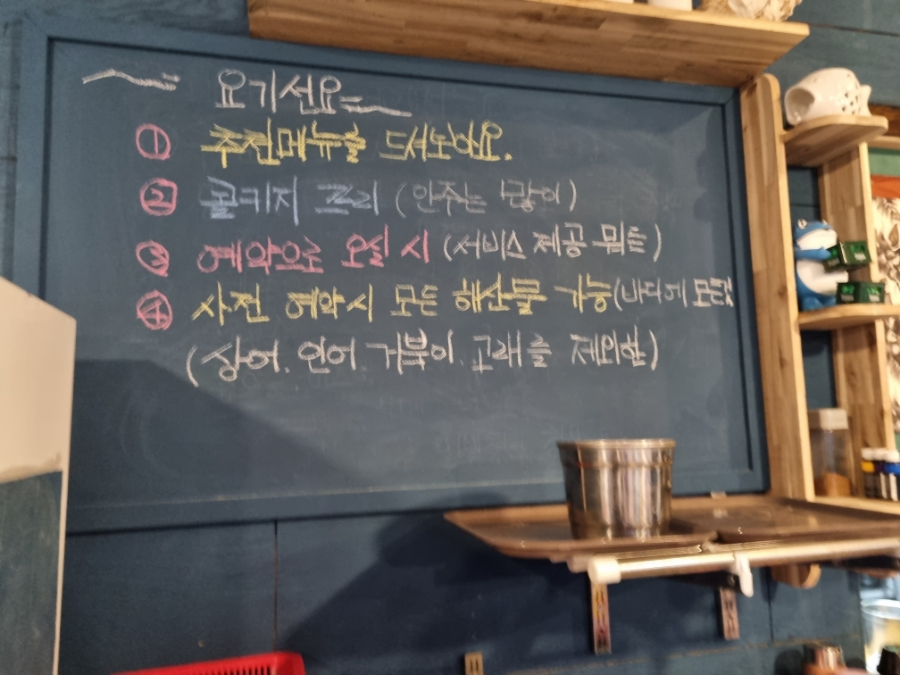 요기선요
① 추천메뉴를 드셔보아요.
② 콜키지 프리 (안주는 많이)
③ 예약으로 오실 시 (서비스 제공 뭐든)
④ 사전 예약시 모든 해산물 가능(바다에 모든것
(상어. 인어. 거북이. 고래를 제외한)